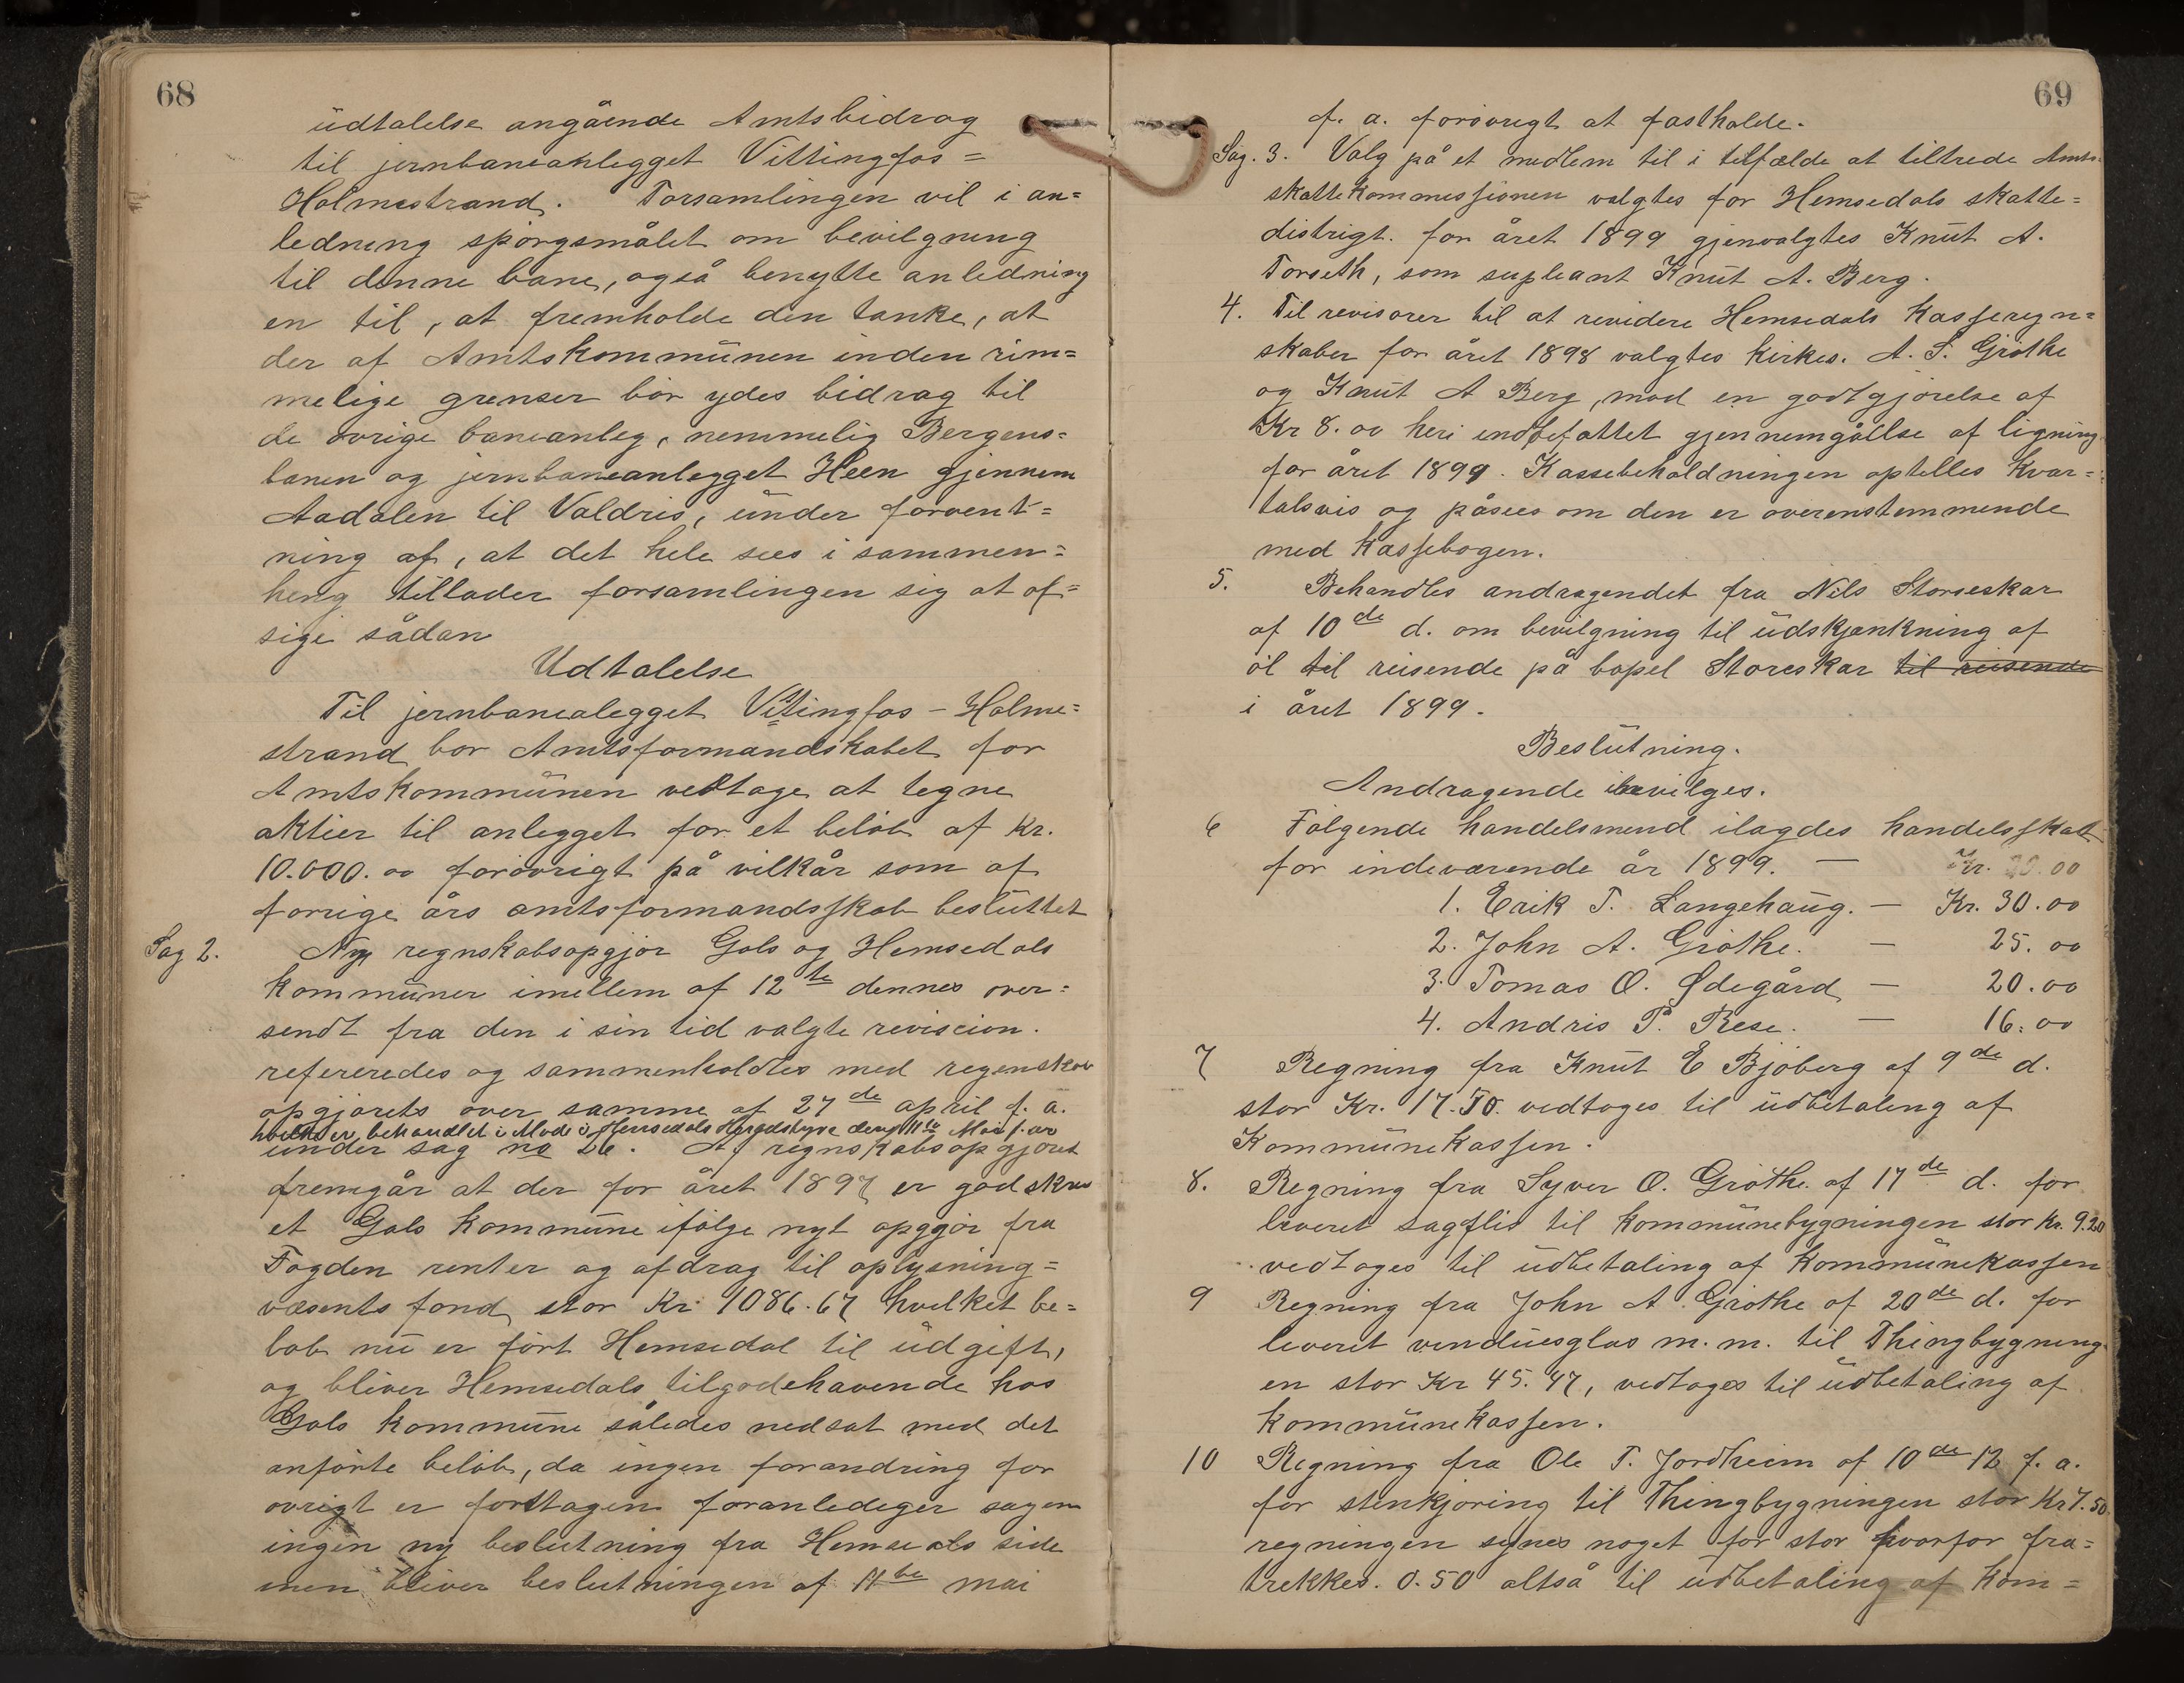 68
udtalelse angående Amtsbidrag
til jernbaneanlegget Vittingfos =
Holmestrand. Forsamlingen vil i an=
ledning spörgsmålet om bevilgning
til denne bane, også benytte anledning
en til, at fremholde den tanke, at
der af Amtskommunen inden rim=
melige grenser bör ydes bidrag til
de övrige baneanleg, nemmelig Bergens=
banen og jernbaneanlegget Heen gjennem
Aadalen til Valdris, under forvent=
ning af, at det hele sees i sammen=
heng tillader forsamlingen sig at af=
sige sådan
Udtalelse
Til jernbanealegget Vittingfos - Holme=
strand bör Amtsformandskabet for
Amtskommunen vedtage at tegne
aktier til anlegget for et belöb af Kr.
10.000.00 foröovrigt på vilkår som af
forrige års amtsformandsskab besluttet
Sag 2. Ny regnskabsopgjör Gols og Hemsedals
kommuner imellem af 12te dennes over=
sendt fra den i sin tid valgte reviscion.
refereredes og sammenholdtes med regenskab
opgjörets over samme af 27de april f. a.
hvilke er behandlet i Möde i Hemsedals Heredstyre den 11te Mai f. år
under sag no 26. Af regnskabsopgjöret
fremgår at der for året 1897 er godskrev
et Gols kommune ifölge nyt opgjör fra
Fogden renter og afdrag til oplysning=
væsents fond stor Kr 1086.67 hvilket be=
löb nu er fört Hemsedal til udgift,
og bliver Hemsedals tilgodehavende hos
Gols kommune således nedsat med det
anförte belöb, da ingen forandring for
övrigt er forttagen foranlediger sagen
ingen ny beslutning fra Hemsedals side
men bliver beslutningen af 11te mai
69
f. a. forövrigt at fastholde.
Sag. 3. Valg på et medlem til i tilfælde at tiltrede Amts
skattekommissionen valgtes for Hemsedals skatte=
distrigt. for året 1899 gjenvalgtes Knut A.
Torseth, som supleant Knut A. Berg.
4. Til revisorer til at revidere Hemsedals Kasseregn=
skaber for året 1898 valgtes kirkes. A. S. Gröthe
og Knut A Berg, mod en godtgjörelse af
Kr 8.00 heri indbefattet gjennemgåelse af ligning
for året 1899. Kassebeholdningen optelles kvar=
talsvis og påsees om den er overenstemmende
med kassebogen.
5. Behandles andragendet fra Nils Storeskar
af 10de d. om bevilgning til udskjænkning af
öl til reisende på bopel Storeskar til reisende
i året 1899.
Beslutning.
Andragende bevilges.
6 Fölgende handelsmend ilagdes handelsskatt
for indeværende år 1899. — Kr. 20.00
1. Erik T. Langehaug. — Kr. 30.00
2. John A. Gröthe. — 25.00
3. Tomas O. Ødegård — 20.00
4. Andris P. Rese. — 16.00
7 Regning fra Knut E Bjöberg af 9de d.
stor Kr. 17.50. vedtoges til udbetaling af
Kommunekassen.
8. Regning fra Syver O. Gröthe. af 17de d. for
leveret sagflis til kommunebygningen stor Kr. 9.20
vedtoges til udbetaling af kommunekassen
9 Regning fra John A. Gröthe af 20de d. for
leveret vinduesglas m. m. til Thingbygning
en stor Kr 45.47, vedtoges til udbetaling af
kommunekassen.
10 Regning fra Ole T. Jordheim af 10de 12 f. a.
for stenkjöring til Thingbygningen stor Kr 7.50
regningen synes noget for stor hvorfor fra=
trekkes. 0.50 altså til udbetaling af kom=